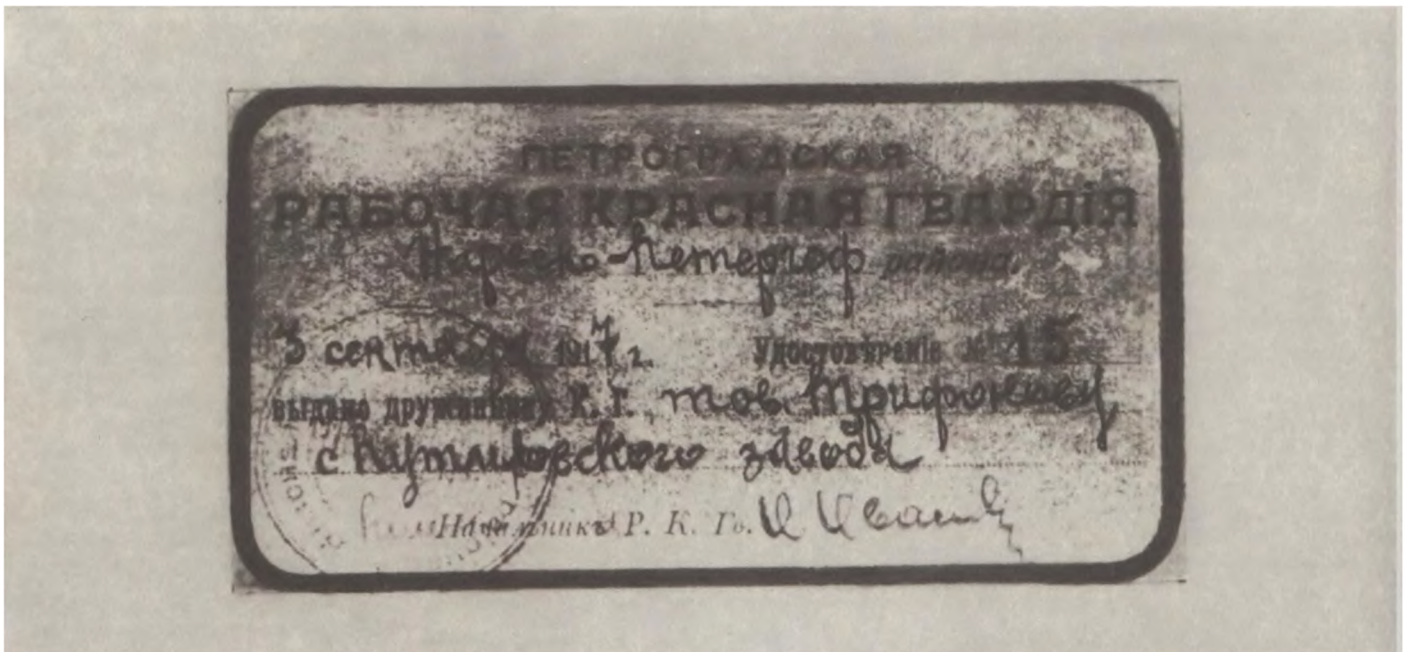 ПЕТРОГРАДСКАЯ
РАБОЧАЯ КРАСНАЯ ГВАРДІЯ
Нарвско-Петергоф района.
3 сентября 1917 г. Удостовѣреніе № 15
выдано дружиннику К. Г. тов. Трифонову
с Путиловского завода
Начальникъ Р. К. Гв.